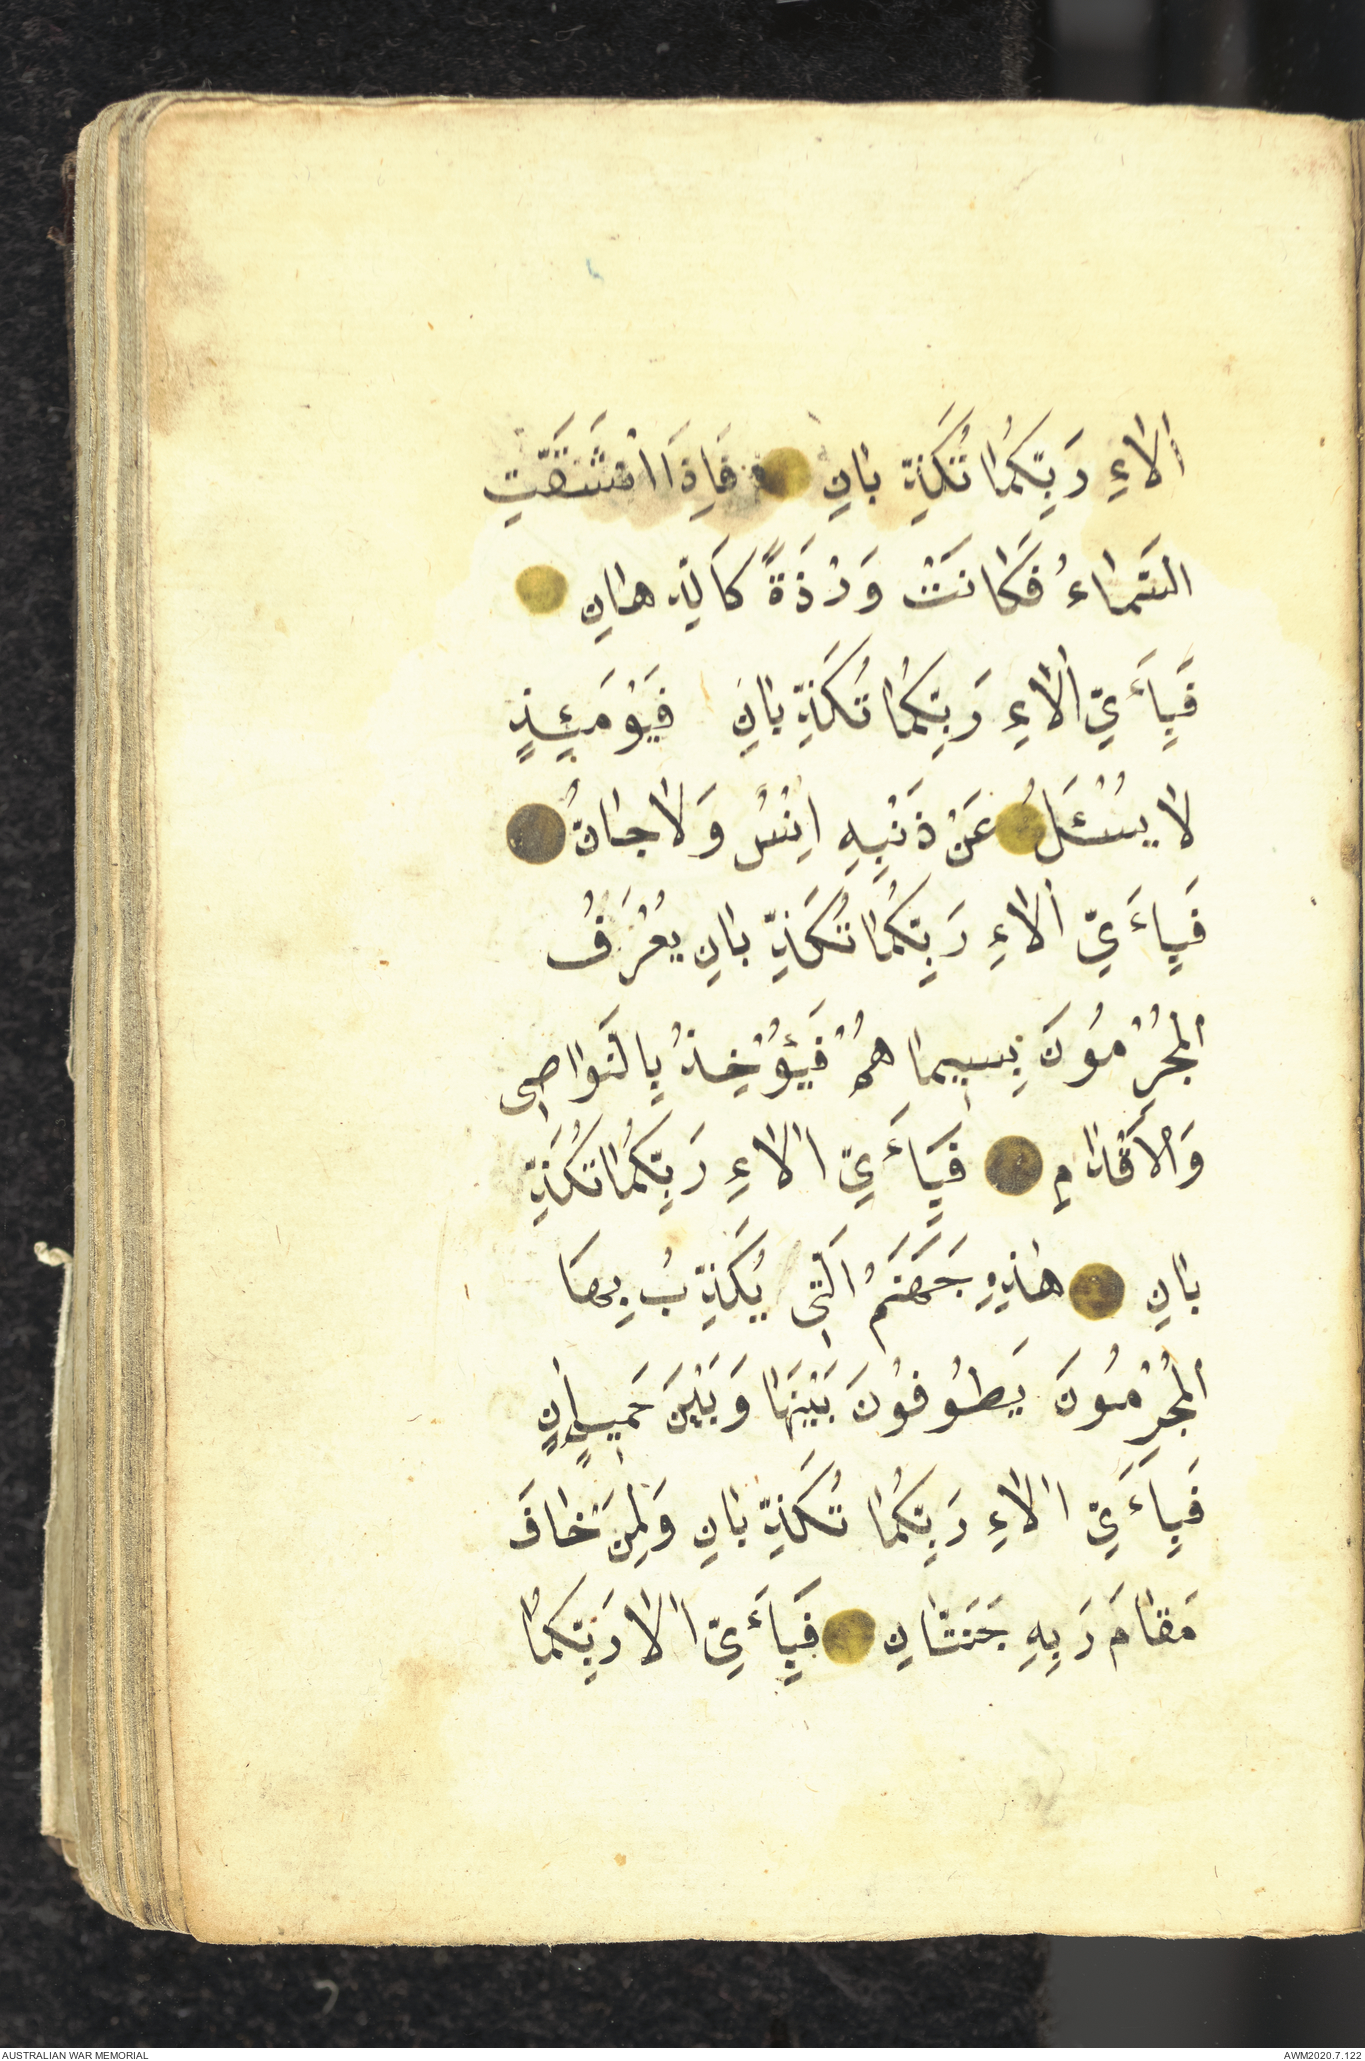 اٰلاٰءِ رَبِّكُمٰا تُكَذِّبٰانِ فَاِذَا انْشَقَّتِ
السَّمٰاءُ فَكٰانَتْ وَرْدَةً كَالدِّهٰانِ
فَبِاَىِّ اٰلاٰءِ رَبِّكُمٰا تُكَذِّبٰانِ فَيَوْمَئِذٍ
لاٰ يُسْئَلُ عَنْ ذَنْبِهِ اِنْسٌ وَلاٰ جٰانٌّ
فَبِاَىِّ اٰلاٰءِ رَبِّكُمٰا تُكَذِّبٰانِ يُعْرَفُ
الْمُجْرِمُونَ بِسيمٰاهُمْ فَيُؤْخَذُ بِالنَّوٰاصى
وَالْاَقْدٰامِ فَبِاَىِّ اٰلاٰءِ رَبِّكُمٰا تُكَذِّ
بٰانِ هٰذِهِ جَهَنَّمُ الَّتى يُكَذِّبُ بِهَا
الْمُجْرِمُونَ يَطُوفُونَ بَيْنَهٰا وَبَيْنَ حَميمٍ اٰنٍ
فَبِاَىِّ اٰلاٰءِ رَبِّكُمٰا تُكَذِّبٰانِ وَلِمَنْ خٰافَ
مَقٰامَ رَبِهِ جَنَتٰانِ فَبِاَىِّ اٰلاٰ رَبِّكُمٰا
AUSTRALIAN WAR MEMORIAL
AWM2020.7.122